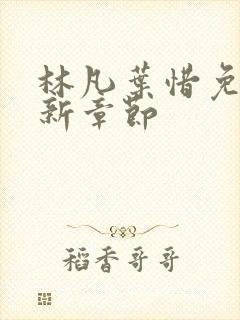 林凡葉惜免
新章節
稻香哥哥